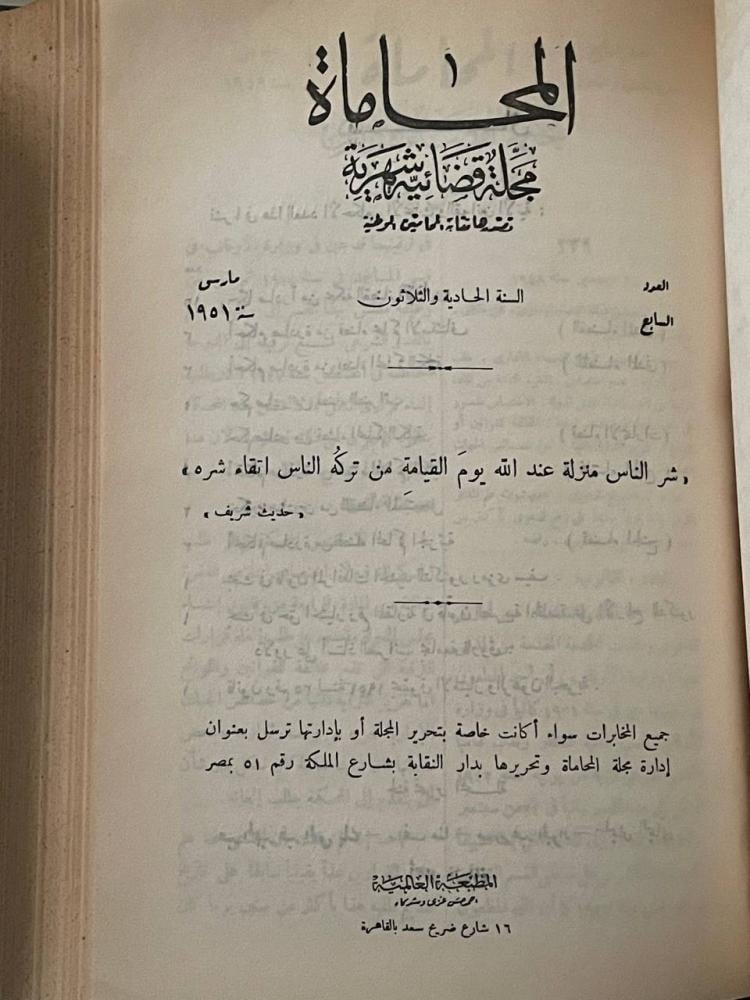 المحاماة
مجلة قضائية شهرية
تصدرها نقابة المحامين الوطنية
العدد السابع
السنة الحادية والثلاثون
مارس سنة ١٩٥١
« شر الناس منزلة عند الله يومَ القيامةِ من تركهُ الناس اتقاء شره »
« حديث شريف »
جميع المخابرات سواء أكانت خاصة بتحرير المجلة أو بإدارتها ترسل بعنوان
إدارة مجلة المحاماة وتحريرها بدار النقابة بشارع الملكة رقم ٥١ بمصر
المطبعة العالمية
١٦ شارع ضريح سعد بالقاهرة